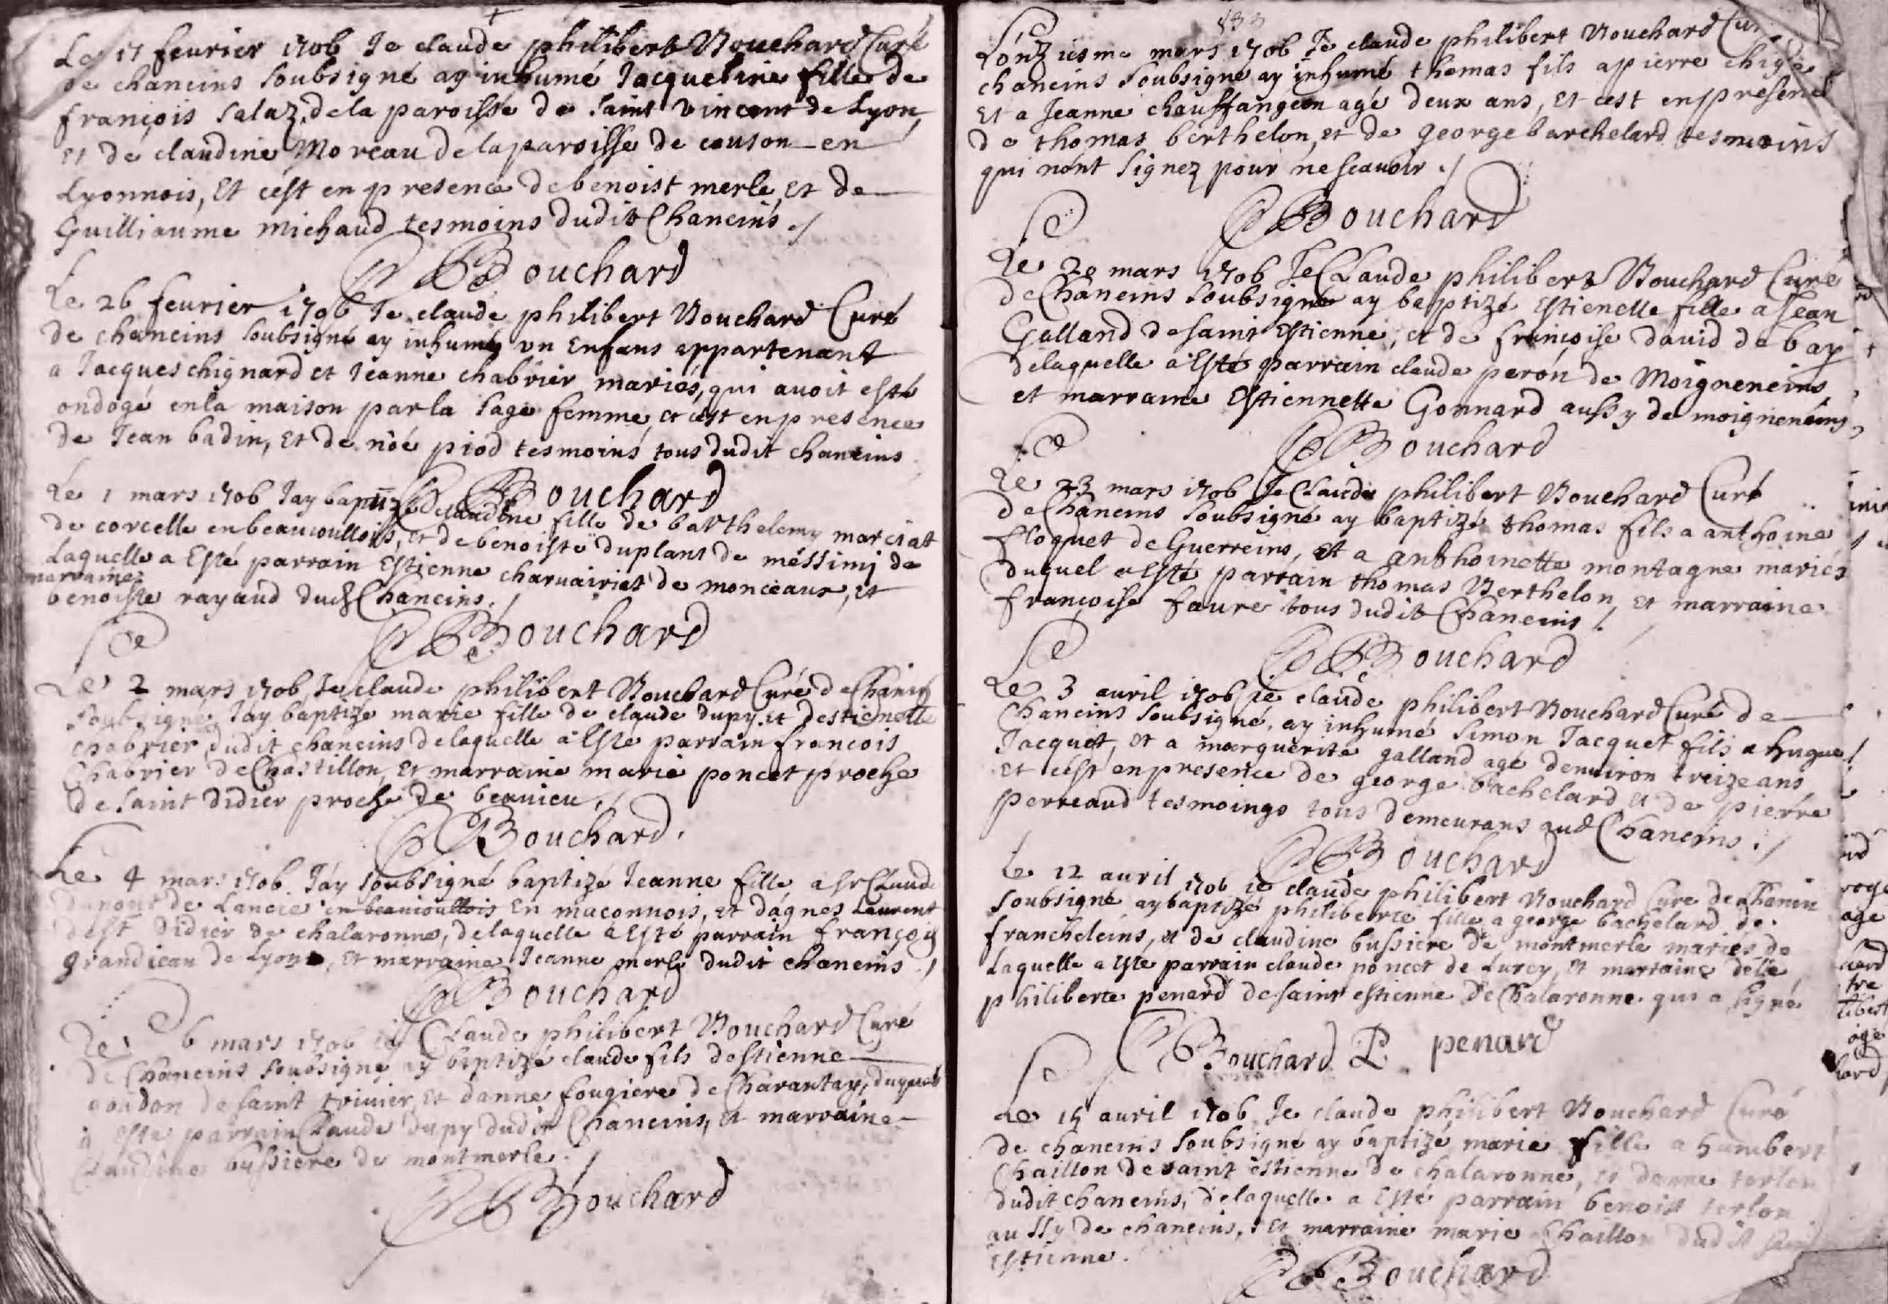 Le 17 feurier 1706 Je claude philibert Bouchard Curé
de chaneins soubsigné ay inhumé Jacqueline fille de
françois Salaz, de la paroisse de saint vincent de Lyon,
et de claudine Moreau de la paroisse de couson en
Lyonnois, Et cést en presence de benoist merle, et de
Guilliaume michaud tesmoins dudit Chaneins ./
Bouchard
Le 26 feurier 1706 Je claude philibert Bouchard Curé
de chaneins soubsigné ay inhumé vn Enfans appartenant
a Jacques chignard et Jeanne chabrier mariés, qui auoit esté
ondogé en la maison par la sage femme, et cést en presence
de Jean badin, Et de noé piod tesmoins tous dudit chaneins
Bouchard
Le 1 mars 1706 Jay baptizé claudine fille de barthelemy marciat
de corcelle en beauioullois, et de benoiste duplant de méssimj de
Laquelle a Esté parrain Estienne charuairiat de monceaux, et
marraine
benoiste rayaud dud Chaneins ./
Bouchard
Le 2 mars 1706 Je claude philibert Bouchard Curé de Chanein
soubsigné Jay baptizé marie fille de claude dupy et destienette
chabrier dudit chaneins de laquelle a Esté parrain francois
Chabrier de Chastillon, Et marraine marie poncet proche
de saint didier proche de beauieu ./
Bouchard.
Le 4 mars 1706 Jáy soubsigné baptizé Jeanne fille a Sr Claude
de Lancie en beauioullois En maconnois, et dágnes Laurent
de st didier de chalaronne, de laquelle a Esté parrain françois
grandjean de Lyon, Et marraine Jeanne merle dudit chaneins ./
Bouchard
Le 6 mars 1706 je Claude philibert Bouchard Curé
de Chaneins soubsigné ay baptizé claude fils destienne
goudon de saint triuier, Et danne fougiere de Charantay, duquel
a esté parrain Claude dupy dudit Chaneins, et marraine
Claudine bussiere de montmerle ./
Bouchard
133
Lónziesme mars 1706 Je claude philibert Bouchard Curé
chaneins soubsigné ay inhumé thomas fils a pierre
Et a Jeanne chauffangeon agé deux ans, Et cést en presence
de thomas berthelon, et de george barchelard tesmoins
qui nónt signez pour ne scauoir ./
Bouchard
Le 20 mars 1706 Je Claude philibert Bouchard Curé
de Chaneins soubsigné ay baptizé Estienette fille a Jean
Galland de saint Estienne, et de françoise dauid de bay
de laquelle a Esté parrain claude perón de Moigneneins
et marraine Estiennette Gonnard aussy de moigneneins,
Bouchard
Le 23 mars 1706 Je Claude philibert Bouchard Curé
de Chaneins soubsigné ay baptizé thomas fils a anthoine
floquet de Guerreins, et a anthoinette montagne mariés
duquel a esté parrain thomas Berthelon, Et marraine
françoise faure tous dudit Chaneins /.
Bouchard
Le 3 auril 1706 je claude philibert Bouchard Curé de
Chaneins soubsigné, ay inhumé Simon Jacquet fils a hugue
Jacquet, et a marguerite galland agé denuiron treize ans
Et cést en presence de george bachelard et de pierre
perreaud tesmoings tous demeurans aud Chaneins ./
Bouchard
Le 12 auril 1706 je claude philibert Bouchard Curé de Chanein
soubsigné ay baptizé philiberte fille a george bachelard de
francheleins, et de claudine bussiere de montmerle mariés, de
Laquelle a Este parrain claude poncet de Lurcy, Et marraine delle
philiberte penard de saint estienne de Chalaronne qui a signé
Bouchard P. penard
Le 15 auril 1706 Je claude philibert Bouchard Curé
de chaneins soubsigné ay baptizé marie fille a humbert
Chaillon de saint estienne de chalaronne, et danne terlon
dudit chaneins, de laquelle a Esté parrain benoist terlon
aussy de chaneins, Et marraine marie Chaillon dudit saint
estienne.
Bouchard